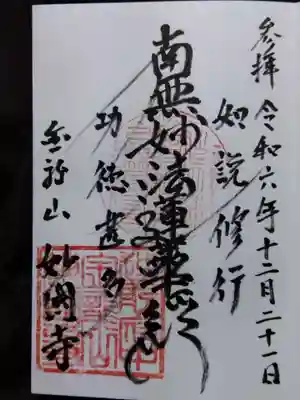 参拝 令和六年十二月二十一日
如説修行
南無妙法蓮華経
功徳甚多
妙國寺